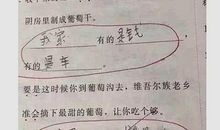 阴房里制成葡萄干。
我家有的是钱
有的是车。
要是这时候你到葡萄沟去，维吾尔族老乡
准会摘下最甜的葡萄，让你吃个够。